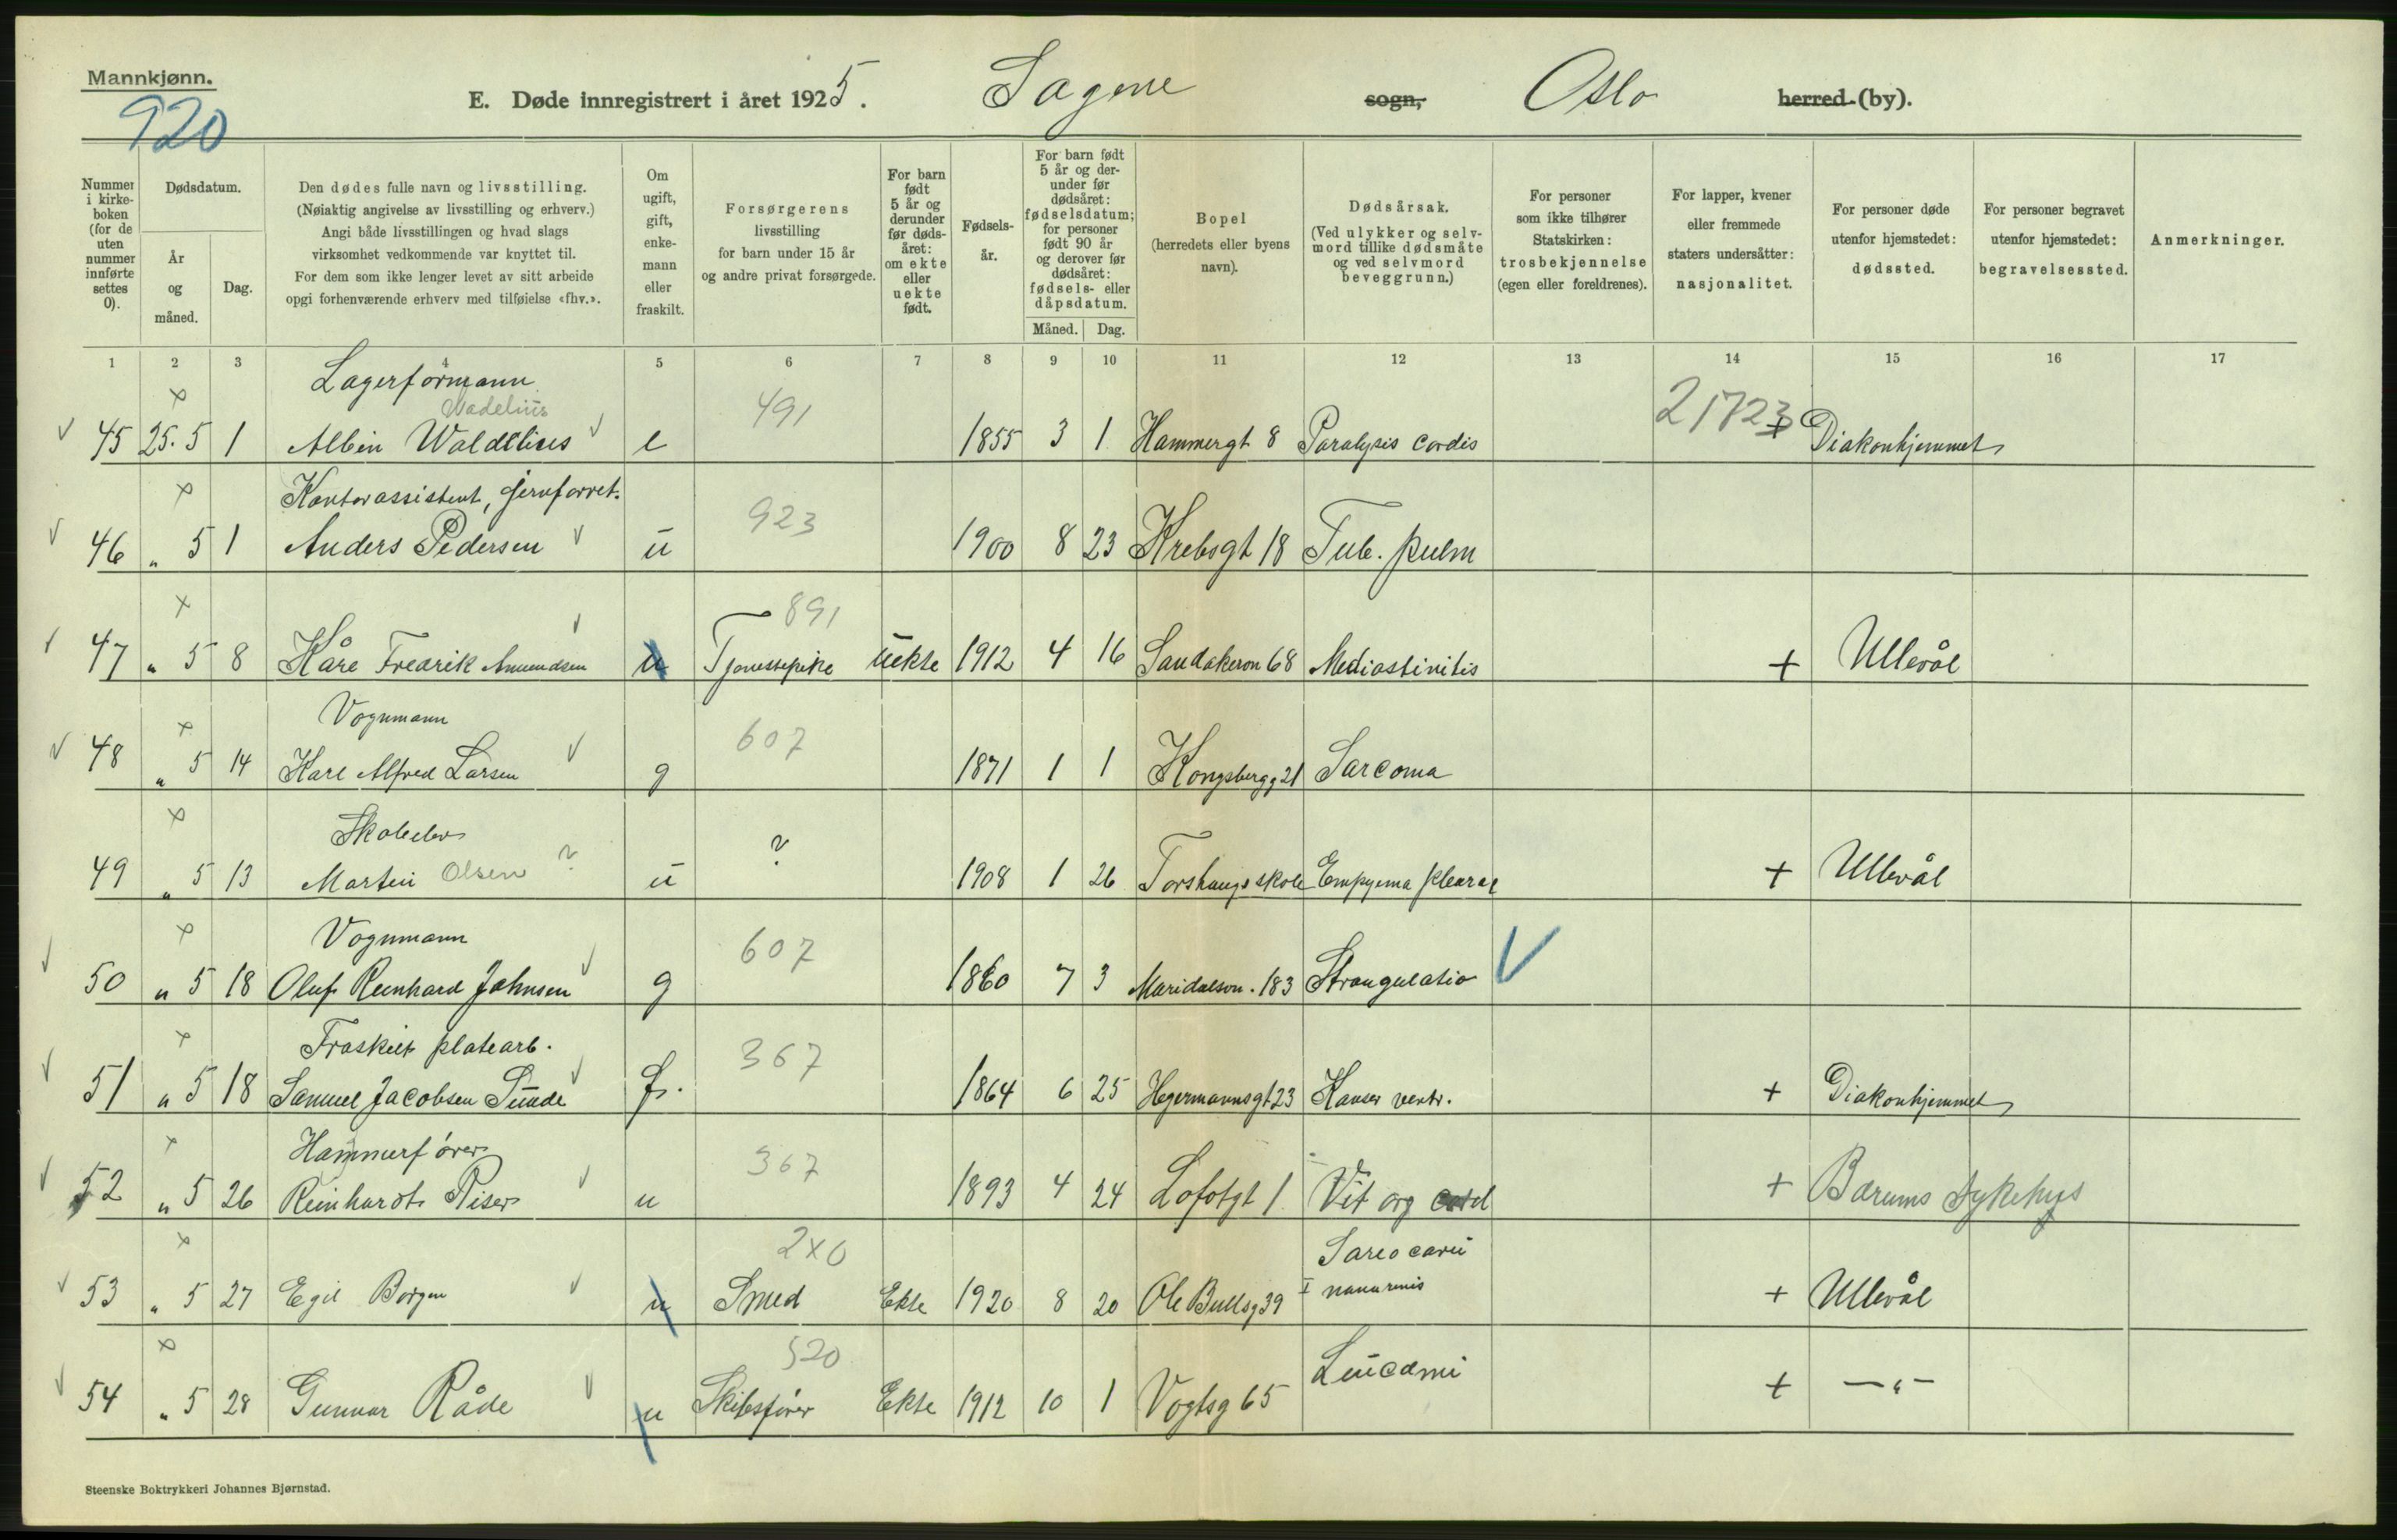 Mannkjønn.
920
E. Døde innregistrert i året 1925. Sagene sogn, Oslo herred (by).
Nummer i kirke-boken (for de uten nummer innførte settes 0).
Dødsdatum.
År og måned.
Dag.
Den dødes fulle navn og livsstilling.
(Nøiaktig angivelse av livsstilling og erhverv.)
Angi både livsstillingen og hvad slags
virksomhet vedkommende var knyttet til.
For dem som ikke lenger levet av sitt arbeide
opgi forhenværende erhverv med tilføielse «fhv.».
Om ugift, gift, enke-mann eller fraskilt.
Forsørgerens
livsstilling
for barn under 15 år
og andre privat forsørgede.
For barn født 5 år og derunder før døds-året: om ekte eller uekte født.
Fødsels-år.
For barn født 5 år og der-under før dødsåret: fødselsdatum; for personer født 90 år og derover før dødsåret: fødsels- eller dåpsdatum.
Måned. Dag.
Bopel
(herredets eller byens
navn).
Dødsårsak.
(Ved ulykker og selv-
mord tillike dødsmåte
og ved selvmord
beveggrunn.)
For personer
som ikke tilhører
Statskirken:
trosbekjennelse
(egen eller foreldrenes).
For lapper, kvener
eller fremmede
staters undersåtter:
nasjonalitet.
For personer døde
utenfor hjemstedet:
dødssted.
For personer begravet
utenfor hjemstedet:
begravelsessted.
Anmerkninger.
1 2 3 4 5 6 7 8 9 10 11 12 13 14 15 16 17
Lagerformann
Wadelius 491 21723
45 25. 5 1 Albin Waldelius e 1855 3 1 Hammergt 8 Paralysis cordis + Diakonhjemmet
Kontorassistent, jernforret. 923
46 " 5 1 Anders Pedersen u 1900 8 23 Krebsgt 18 Tub. pulm
891
47 " 5 8 Kåre Fredrik Amundsen u Tjenestepike Uekte 1912 4 16 Sandakeron 68 Mediastinitis + Ullevål
Vognmann 607
48 " 5 14 Karl Alfred Larsen g 1871 1 1 Kongsbergg 21 Sarcoma
Skoleelev ?
49 " 5 13 Martin Olsen ? u 1908 1 26 Torshaugs skole Empyema pleurae + Ullevål
Vognmann 607
50 " 5 18 Oluf Reinhard Johnsen g 1860 7 3 Maridalson. 183 Strangulatio
Fraskilt platearb. 367
51 " 5 18 Samuel Jacobsen Sunde f. 1864 6 25 Hegermannsgt 23 Kanser ventr. + Diakonhjemmet
Hammerfører 367
52 " 5 26 Reinhardt Riser u 1893 4 24 Lofotgt 1 Vit org cord + Bærums Sykehus
2x0 Sarcocarii
53 " 5 27 Egil Borgen u Smed Ekte 1920 8 20 Ole Bullsg 39 + Ullevål
520
54 " 5 28 Gunnar Råde u Skibsfører Ekte 1912 10 1 Vogtsg 65 Leucæmi + — " —
Steenske Boktrykkeri Johannes Bjørnstad.